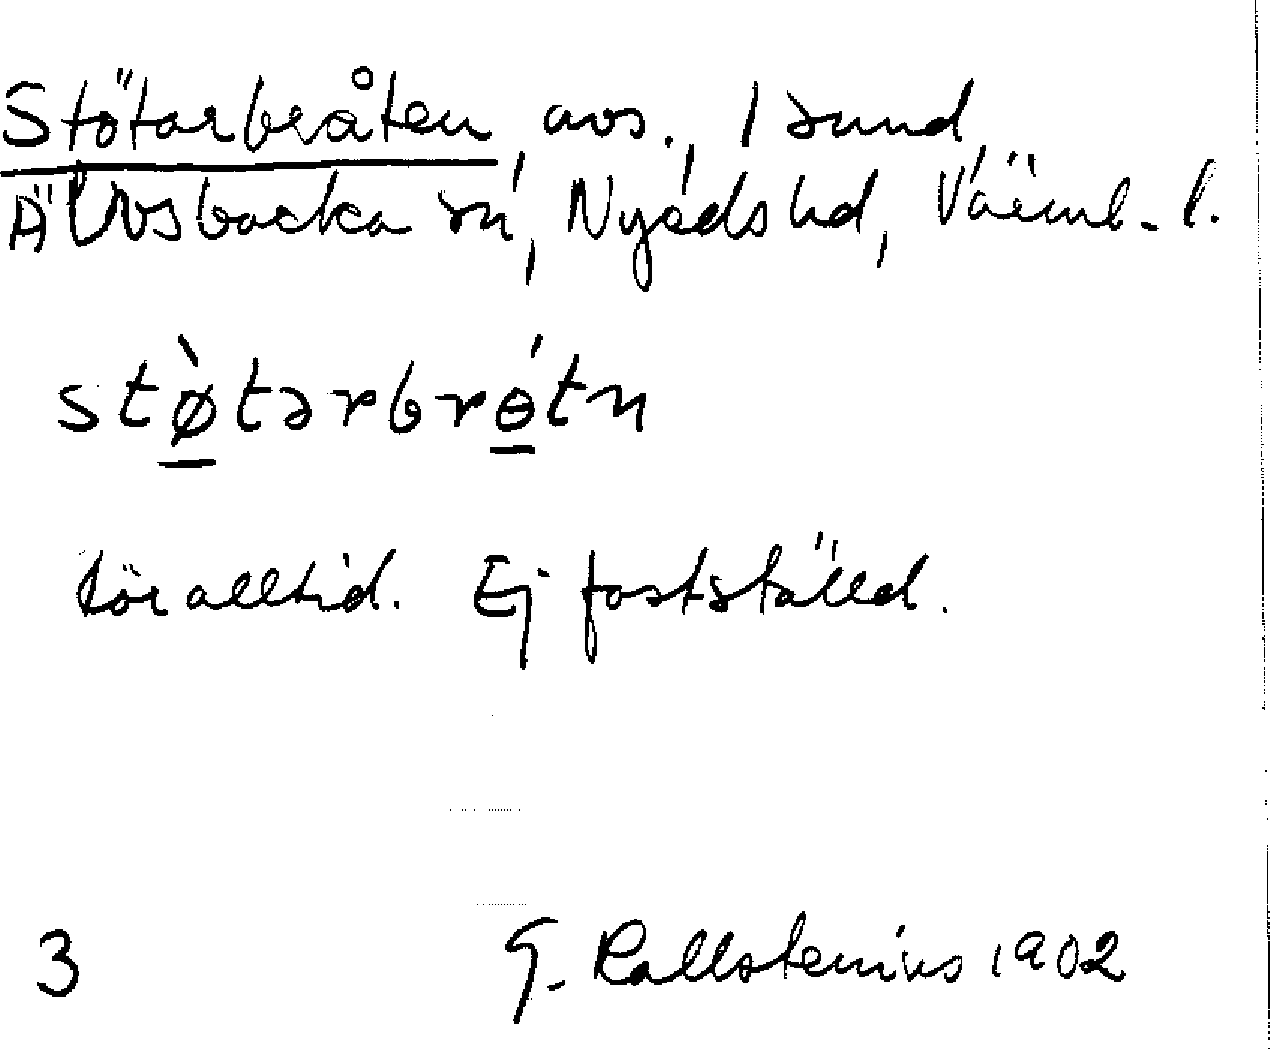 Stötarbråten, avs., i Sund,
Älvsbacka sn, Nyeds hd, Värml. l.
stø̀tərbrɵ́tn
för alltid. Ej fastställd.
3 G. Kallstenius 1902